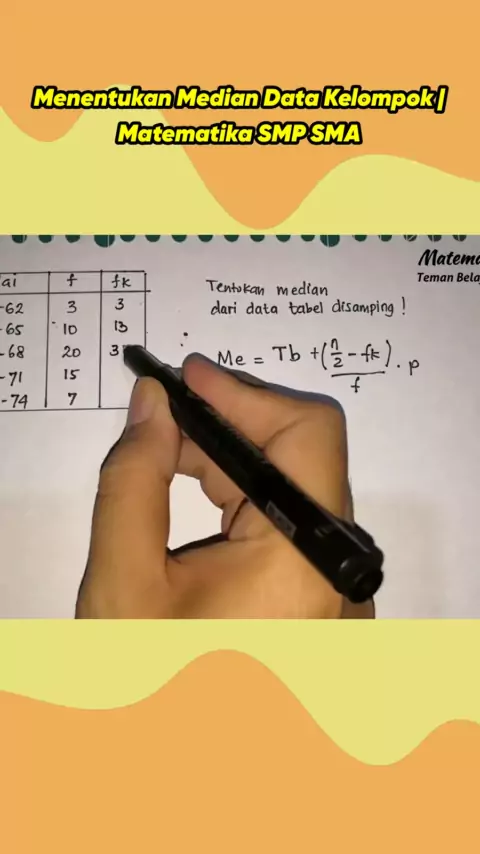 Menentukan Median Data Kelompok |
Matematika SMP SMA
Tentukan median
dari data tabel disamping !
Me = Tb + (n/2 - fk)/f . p
ai f fk
-62 3 3
-65 10 13
-68 20 3
-71 15
-74 7
Matema
Teman Bela